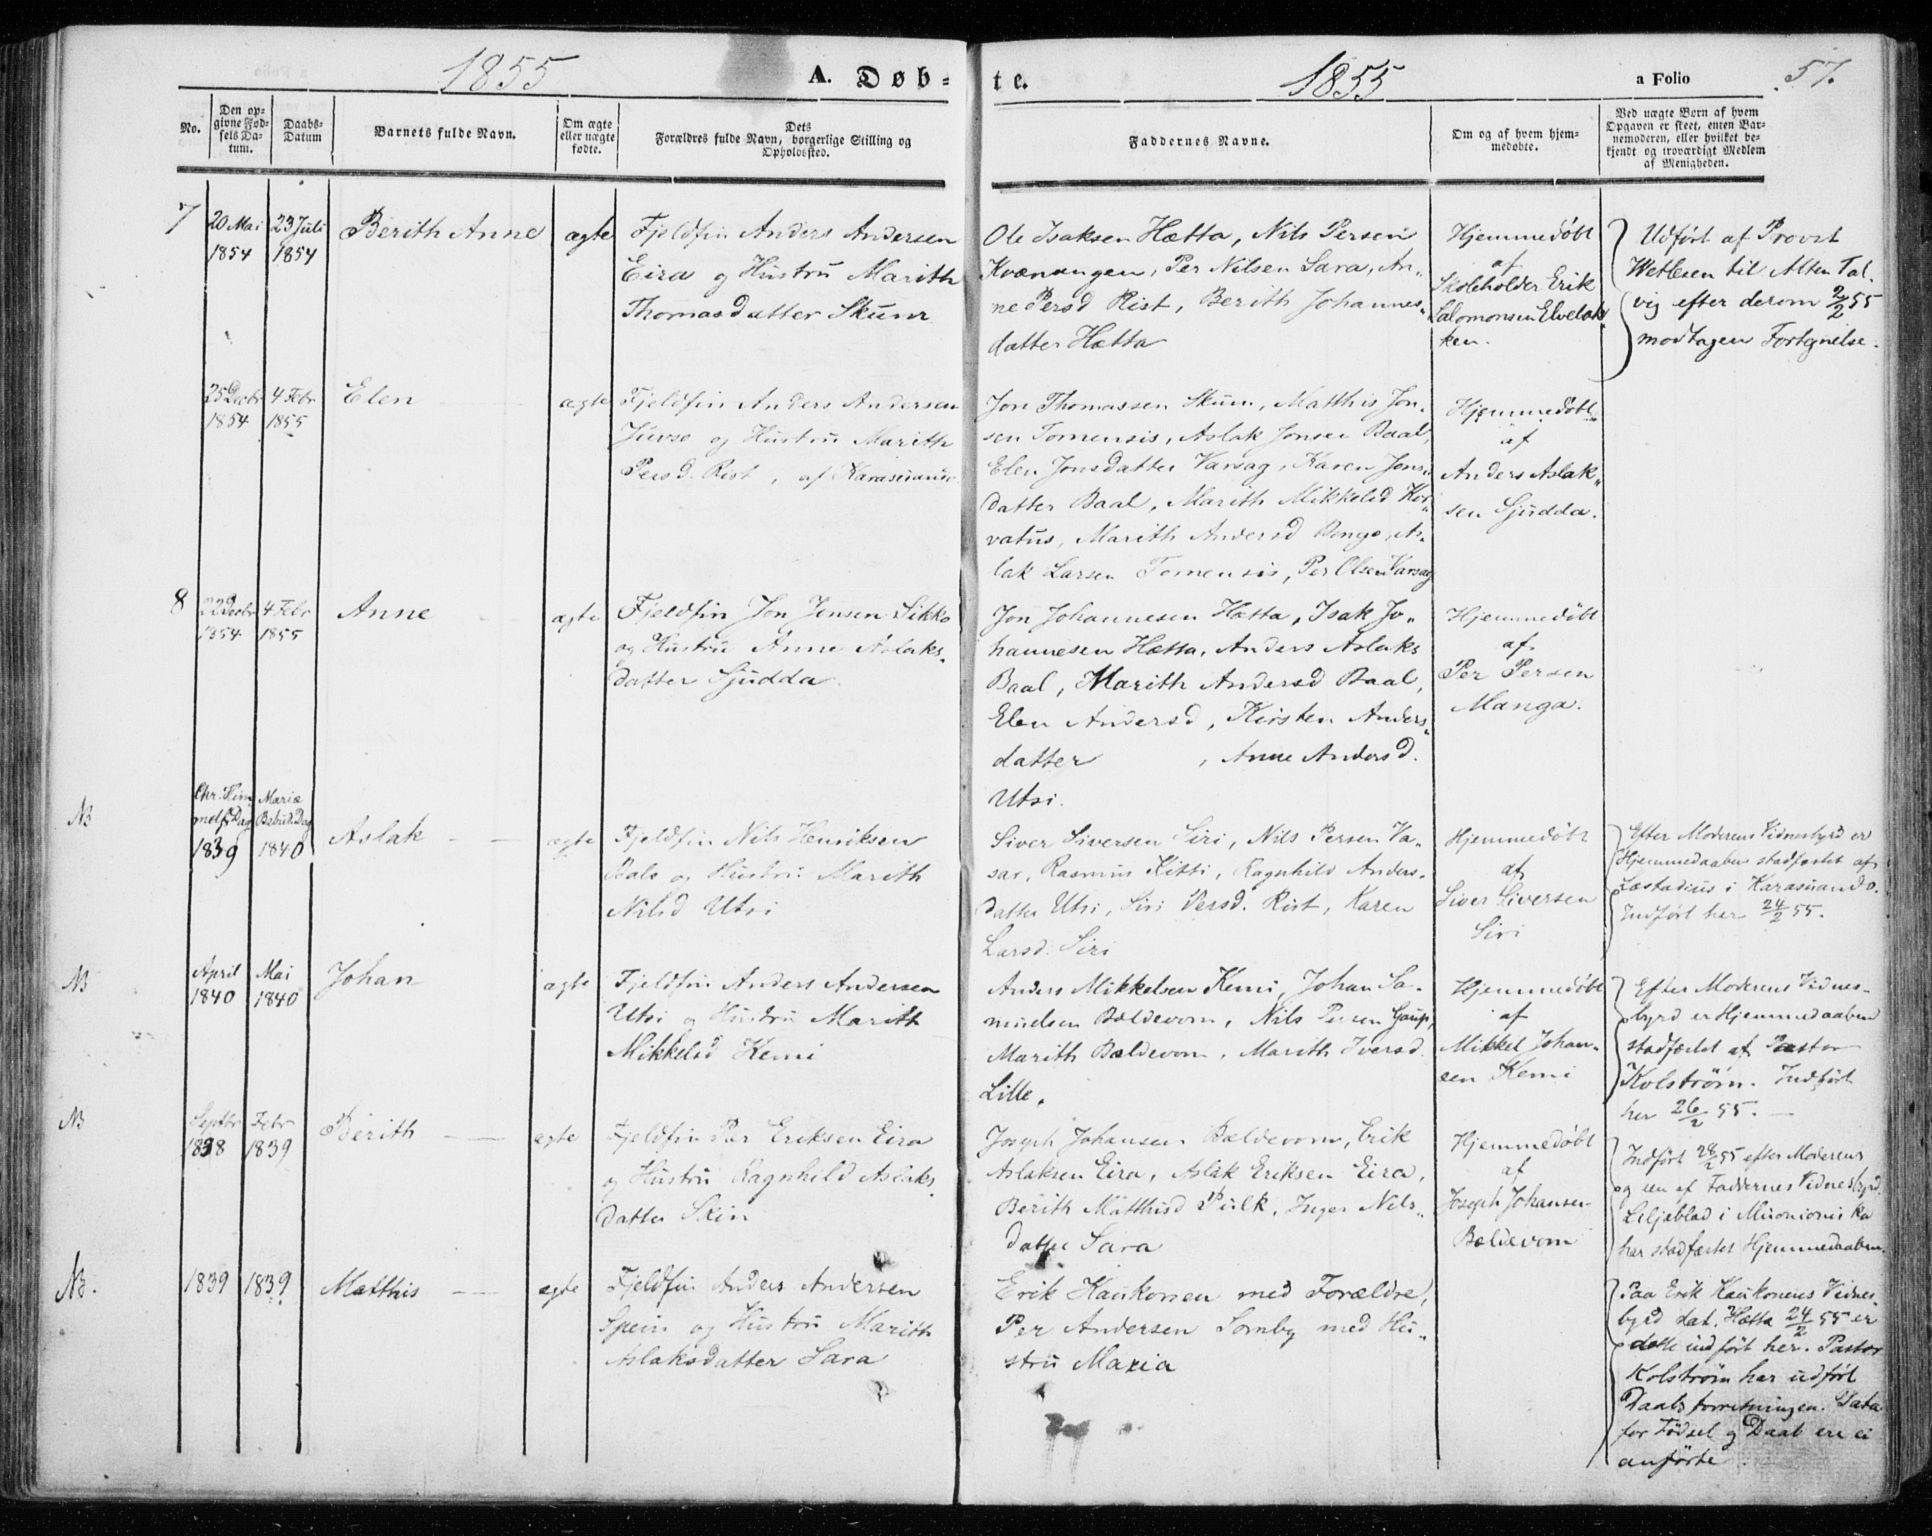 1855 A. Døb- te. 1855 a Folio 57.
No.
Den op-
givne Fød-
sels Da-
tum.
Daabs-
Datum
Barnets fulde Navn.
Om ægte
eller uægte
fødte.
Dets
Forældres fulde Navn, borgerlige Stilling og
Opholdssted.
Faddernes Navne.
Om og af hvem hjem-
medøbte.
Ved uægte Børn af hvem
Opgaven er skeet, enten Bar-
nemoderen, eller hvilket be-
kjendt og troværdigt Medlem
af Menigheden.
7
20 Mai
1854
23 Juli
1854
Berith Anne
ægte
Fjeldfin Anders Andersen
Eira og Hustru Marith
Thomasdatter Skum
Ole Isaksen Hætta, Nils Persen
Kvænangen, Per Nilsen Sara, An-
ne Persd Rist, Berith Johannes-
datter Hætta
Hjemmedøbt
af
Skoleholder Erik
Salomonsen Elvebak-
ken.
Udført af Provst
Wetlesen til Alten Tal-
vig efter derom 2/2 55
modtagen Fortegnelse.
25 Decbr
1854
4 Febr
1855
Elen
ægte
Fjeldfin Anders Andersen
Juuso og Hustru Marith
Persd. Rist, af Karasuando
Jon Thomassen Skum, Matthis Jon-
sen Tomensis, Aslak Jonsen Baal,
Elen Jonsdatter Varsag, Karen Jons-
datter Baal, Marith Mikkelsd Kor-
vatus, Marith Andersd Bongo, As-
lak Larsen Tomensis, Per Olsen Varsag
Hjemmedøbt
af
Anders Aslak-
sen Sjudda.
8
22 Decbr
1854
4 Febr
1855
Anne
ægte
Fjeldfin Jon Jonsen Sikko
og Hustru Anne Aslaks-
datter Sjudda.
Jon Johannesen Hætta, Isak Jo-
hannesen Hætta, Anders Aslaks
Baal, Marith Andersd Baal,
Elen Andersd, Kirsten Anders-
datter , Anne Andersd.
Utsi.
Hjemmedøbt
af
Per Persen
Manga.
NB
Chr. Him-
melf. Dag
1839
Mariæ
Bebud. Dag
1840
Aslak
ægte
Fjeldfin Nils Henriksen
Bals og Hustru Marith
Nilsd Utsi
Siver Siversen Siri, Nils Persen Va-
sar, Rasmus Kitti, Ragnhild Anders-
datter Utsi, Siri Persd. Rist, Karen
Larsd. Siri
Hjemmedøbt
af
Siver Siversen
Siri
Efter Moderens Vidnesbyrd er
Hjemmedaaben stadfæstet af
Læstadius i Karasuando.
Indført her 24/2 55.
NB
April
1840
Mai
1840
Johan
ægte
Fjeldfin Anders Andersen
Utsi og Hustru Marith
Mikkelsd Kemi
Anders Mikkelsen Kemi, Johan Sa-
muelsen Bældevom, Nils Persen Gaup,
Marith Bældevom, Marith Iversd
Lille.
Hjemmedøbt
af
Mikkel Johan-
sen Kemi
Efter Moderens Vidnes-
byrd er Hjemmedaaben
stadfæstet af Pastor
Kolstrøm. Indført
her 26/2 55.
NB
Septbr
1838
Febr
1839
Berith
ægte
Fjeldfin Per Eriksen Eira
og Hustru Ragnhild Aslaks-
datter Skin
Joseph Johansen Bældevom, Erik
Aslaksen Eira, Aslak Eriksen Eira,
Berith Matthisd Pulk, Inger Nils-
datter Sara
Hjemmedøbt
af
Joseph Johansen
Bældevom
Indført 24/2 55 efter Moderens
og een af Faddernes Vidnesbyrd.
Liljeblad i Muonioniska
har stadfæstet Hjemmedaaben.
NB.
1839
1839
Matthis
ægte
Fjeldfin Anders Andersen
Spein og Hustru Marith
Aslaksdatter Sara
Erik Kaukonen med Forældre,
Per Andersen Somby med Hu-
stru Maria
Paa Erik Kaukonens Vidnes-
byrd dat. Hætta 24/2 55 er
dette indført her. Pastor
Kolstrøm har udført
Daabsforretningen. Data
for Fødsel og Daab ere ei
anførte.